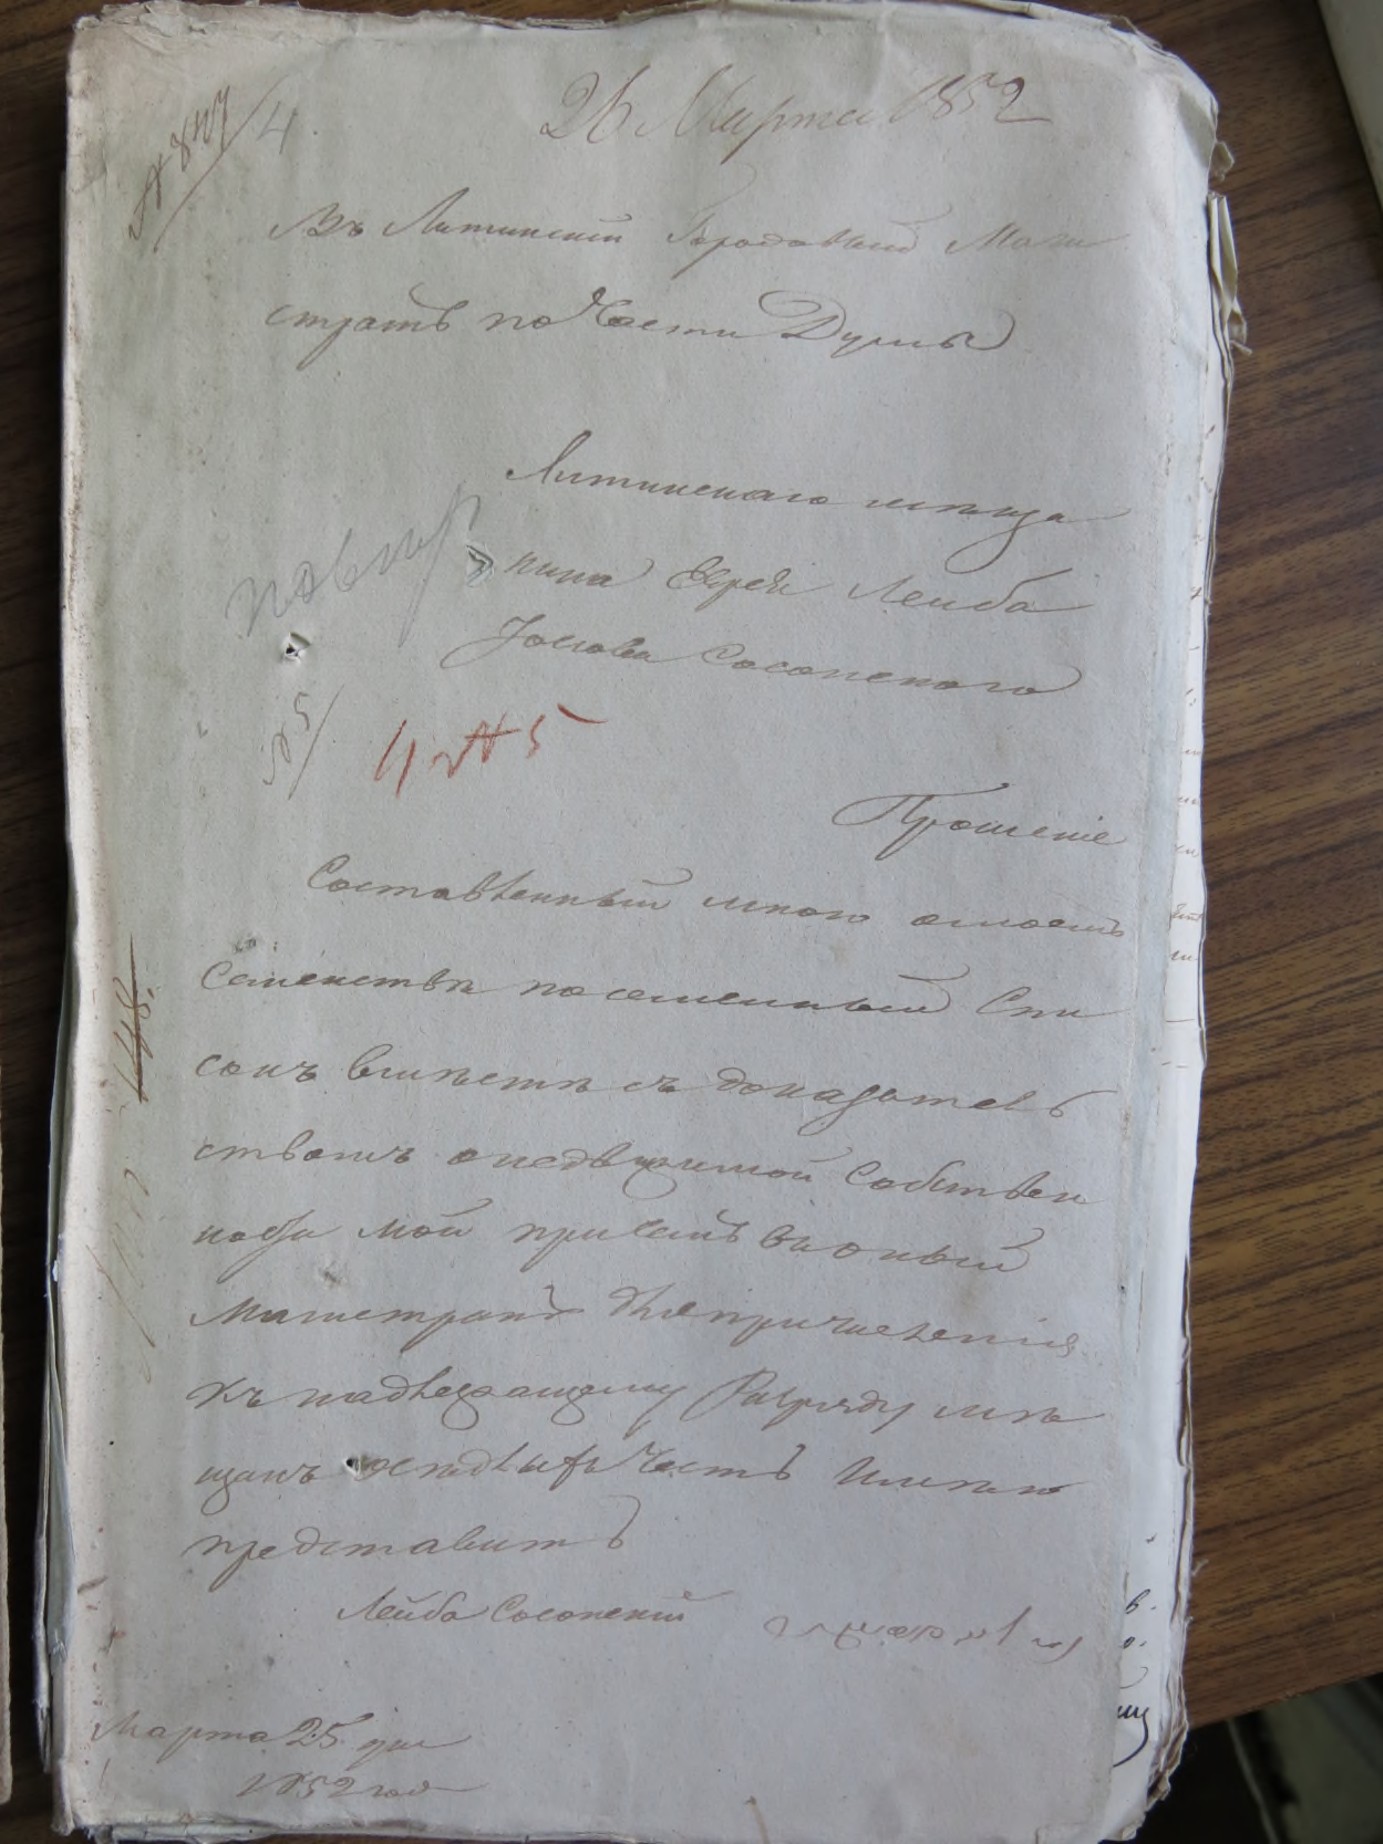 26 Марта 1852
№ 847/4
Въ Литинскій Городовый Маги
стратъ по части Думы
Литинскаго мѣща
нина Еврея Лейба
Іосіова Сосонского
повѣр
№ 5
4 № 5
Прошеніе
Составленный мною о моемъ
Семенствѣ посемейный Спи
сокъ вмѣстѣ съ доказатель
ствомъ о недвижимой Собствен
ности мой при семъ въ оный
Магистратъ для причисленія
къ надлежащему Разряду мѣ
щанъ осѣдлыхъ Честь Имѣю
представить
Лейба Сосонскій
Марта 25 дня
1852 год